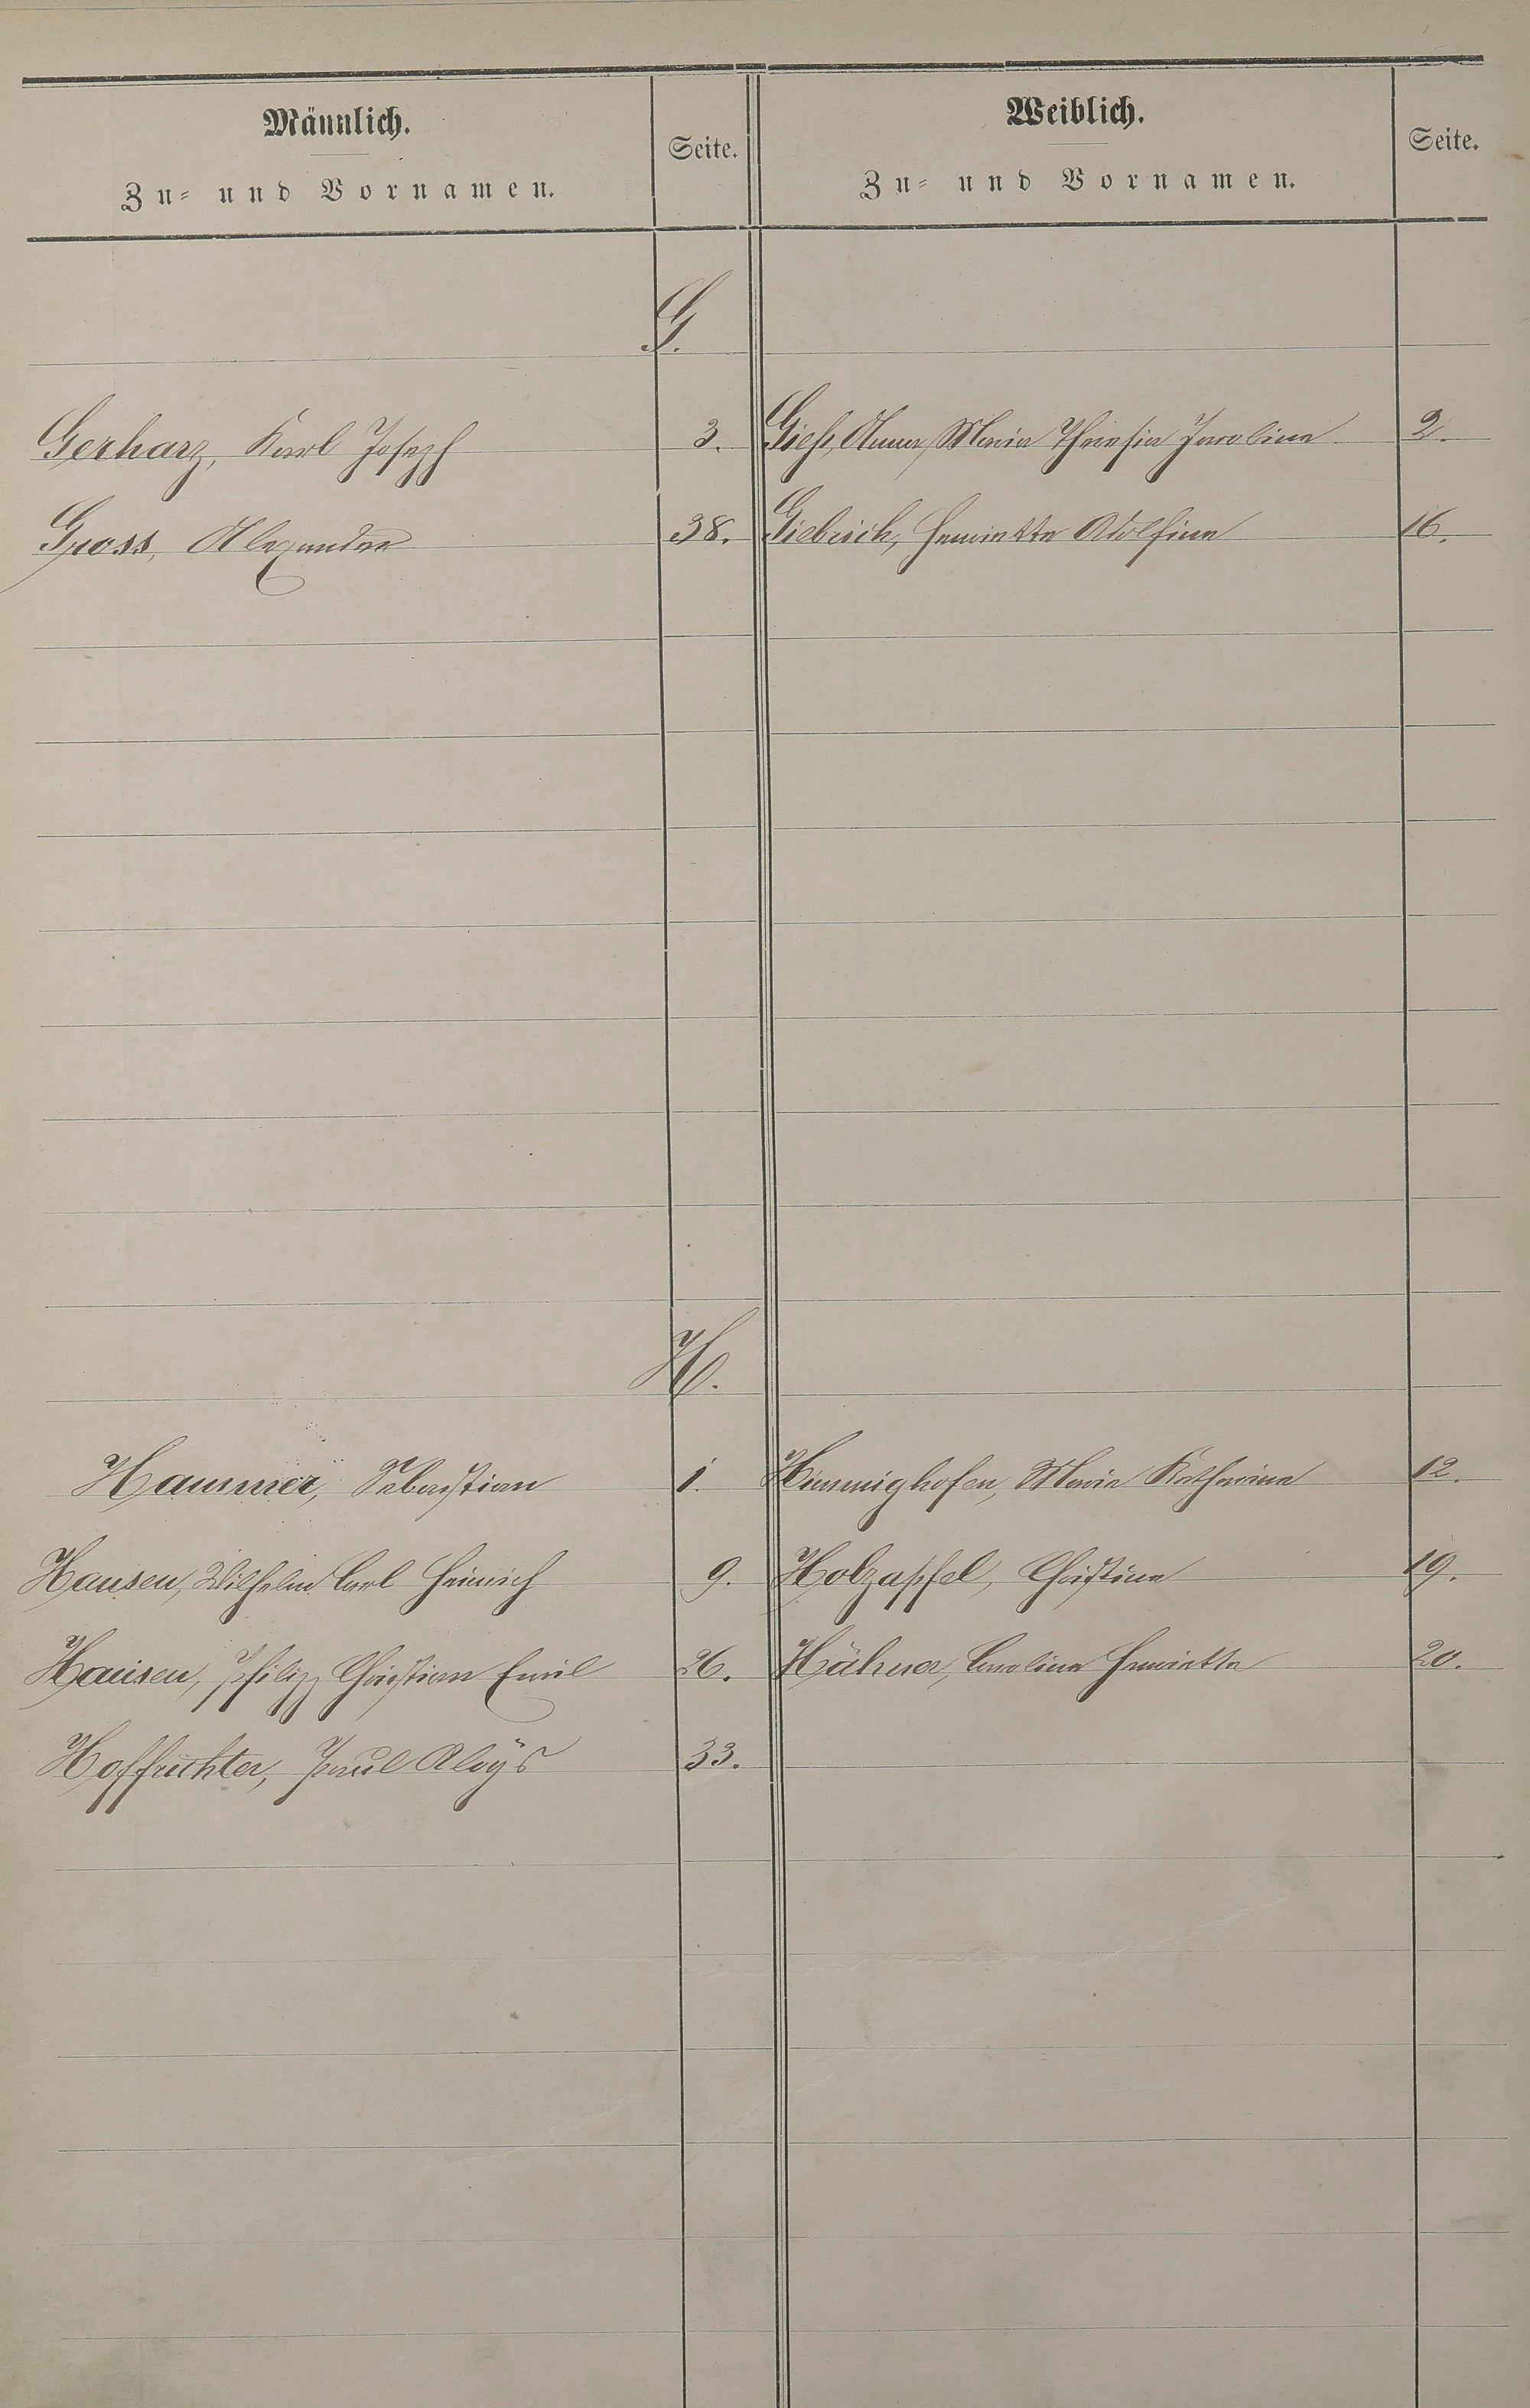 Männlich.
Zu- und Vornamen.
Seite.
Weiblich.
Zu- und Vornamen.
Seite.
G.
Gerharz, Karl Joseph 3.
Gieß, Anna Maria Theresia 2.
Gross, Alexander 38.
Giebisch, Henriette Adolfine 16.
H.
Hammer, Sebastian 1.
Himmighofen, Maria Katharina 12.
Hausen, Wilhelm Carl Heinrich 9.
Holzapfel, Christine 19.
Hausen, Philipp Christian Emil 26.
Hähner, Carolina Henriette 20.
Hoffrichter, Paul Aloÿs 33.